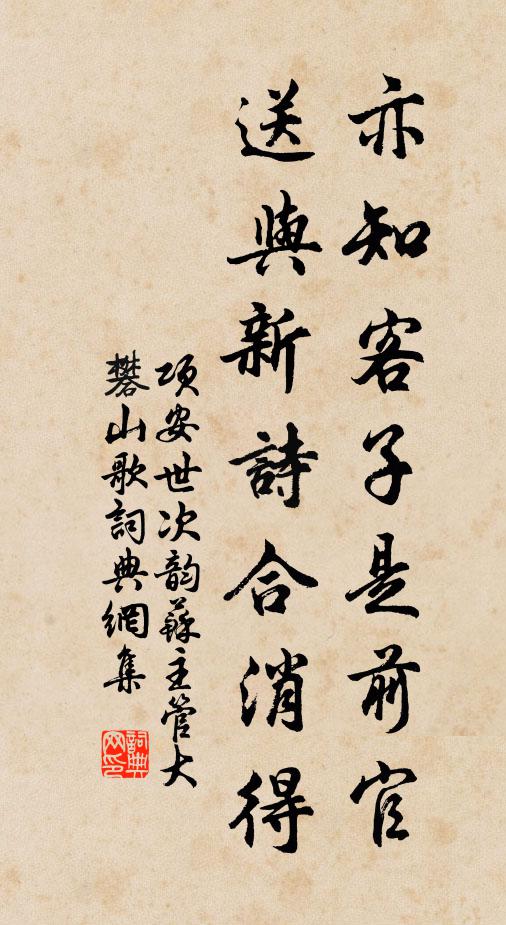 亦知客子是前官
送與新詩合消得
項安世次韵蘇主管大
礬山歌詞典網集
詞典网印